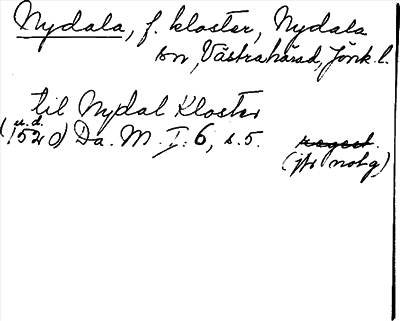 Nydala, f. kloster, Nydala
sn, Västrahärad, Jönk. l.
til Nydal Kloster
u.d.
(1520) Da. M. I: 6, s. 5. regest.
(jfr not 9)